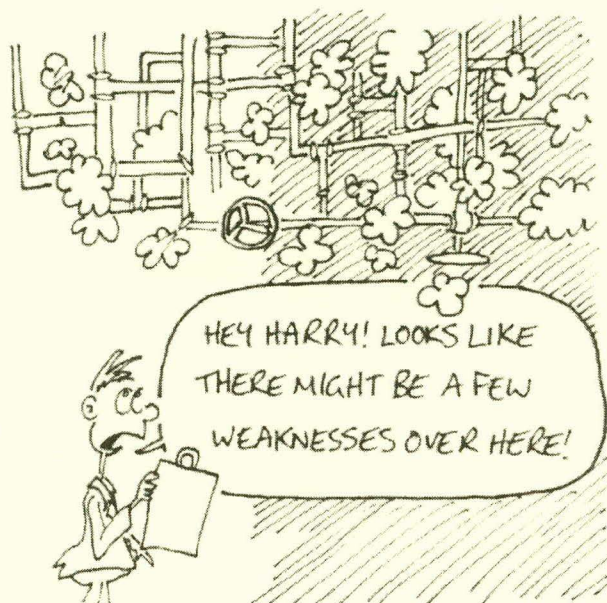 HEY HARRY! LOOKS LIKE
THERE MIGHT BE A FEW
WEAKNESSES OVER HERE!